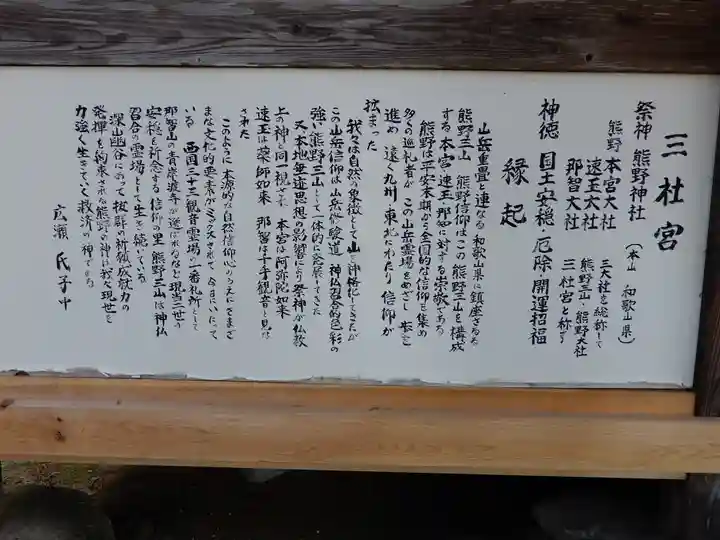 三社宮
祭神 熊野神社 (本山 和歌山県)
熊野本宮大社
速玉大社
那智大社
三大社を総称して
熊野三山・熊野大社
三社宮と称す
神徳 国土安穏・厄除・開運招福
縁起
山岳重畳と連なる和歌山県に鎮座まする
熊野三山 熊野信仰はこの熊野三山を構成
する本宮・速玉・那智に対する崇敬である
熊野は平安末期から全国的な信仰を集め
多くの巡礼者がこの山岳霊場をめざし歩を
進め 遠く九州・東北にわたり信仰が
拡まった
我々は自然の象徴として山を神格化してきたが
この山岳信仰は山岳修験道、神仏習合的色彩の
強い熊野三山として一体的に発展してきた
又本地垂迹思想の影響により祭神が仏教
上の神と同一視さて、本宮は阿弥陀如来
速玉は薬師如来 那智は千手観音と見は
された
このように本源的な自然信仰心のうえにさまざ
まな文化的要素がミックスされて今日にいたって
いる 西国三十三観音霊場の一番札所として
那智山の青岸渡寺が選ばれるなど現当二世の
安穏を祈念する信仰の里 熊野三山は神仏
習合の霊場として生き続いている
深山幽谷にあって抜群の祈願成就力の
発揮を約束される熊野の神は我々現世を
力強く生きていく救済の神である
広瀬 氏子中